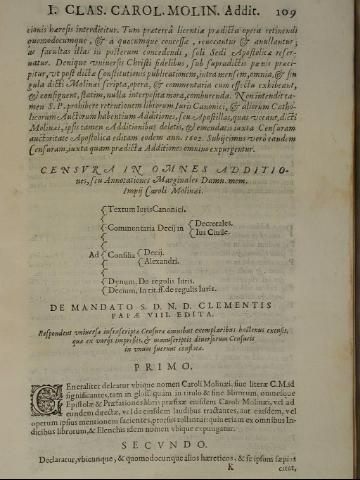 I. CLAS. CAROL. MOLIN. Addit. 109
cionis hæresis interdicitur. Tum præterea licentiæ prædicta opera retinendi
quomodocunque, & a quocunque concessæ, reuocantur & annullantur;
ac facultas illas in posterum concedendi, soli Sedi Apostolicæ reser-
uatur. Denique vniuersis Christi fidelibus, sub supradictis pœnis præci-
pitur, vt post dictæ Constitutionis publicationem, intra mensem, omnia, & sin
gula dicti Molinæi scripta, opera, & commentaria cum effectu exhibeant,
& consignent, statim, nulla interposita mora, comburenda. Non intendit ta-
men S. P. prohibere retentionem librorum Iuris Canonici, & aliorum Catho-
licorum Auctorum habentium Additiones, seu Apostillas, quas vocant, dicti
Molinæi, ipsis tamen Additionibus deletis, & emendatis iuxta Censuram
auctoritate Apostolica editam eodem anno. 1602. Subijcimus verò eandem
Censuram, iuxta quam prædictæ Additiones omnino expurgentur.
CENSVRA IN OMNES ADDITIO-
nes, seu Annotationes Marginales Damn. mem.
Impij Caroli Molinæi.
Textum Iuris Canonici.
Commentaria Decij in
Decretales.
Ius Ciuile.
Ad
Consilia
Decij.
Alexandri.
Dynum, De regulis Iuris.
Decium, In tit. ff. de regulis Iuris.
DE MANDATO S. D. N. D. CLEMENTIS
PAPÆ VIII. EDITA.
Respondent vniuersa infrascripta Censuræ omnibus exemplaribus hactenus excusis,
quæ ex varijs impressis, & manuscriptis diuersorum Censuris
in vnum fuerunt confecta.
PRIMO.
GEneraliter deleatur vbique nomen Caroli Molinæi, siue literæ C.M. id
significantes, tam in glossis quàm in titulo & fine librorum, omnesque
Epistolæ & Præfationes libris præfixæ eiusdem Caroli Molinæi, vel ad
eundem directæ, vel de eiusdem laudibus tractantes, aut eiusdem, vel
operum ipsius mentionem facientes, prorsus tollantur: quin etiam ex omnibus In-
dicibus librorum, & Elenchis idem nomen vbique expungatur.
SECVNDO.
Declaratur, vbicunque, & quomodocunque alios hæreticos, & se ipsum sæpius
K citat,